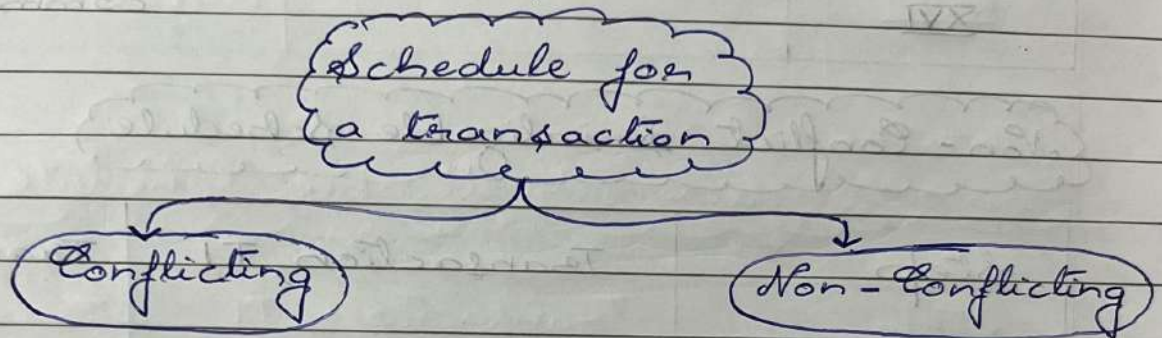 XVI
Schedule for
a transaction
Conflicting
Non-Conflicting